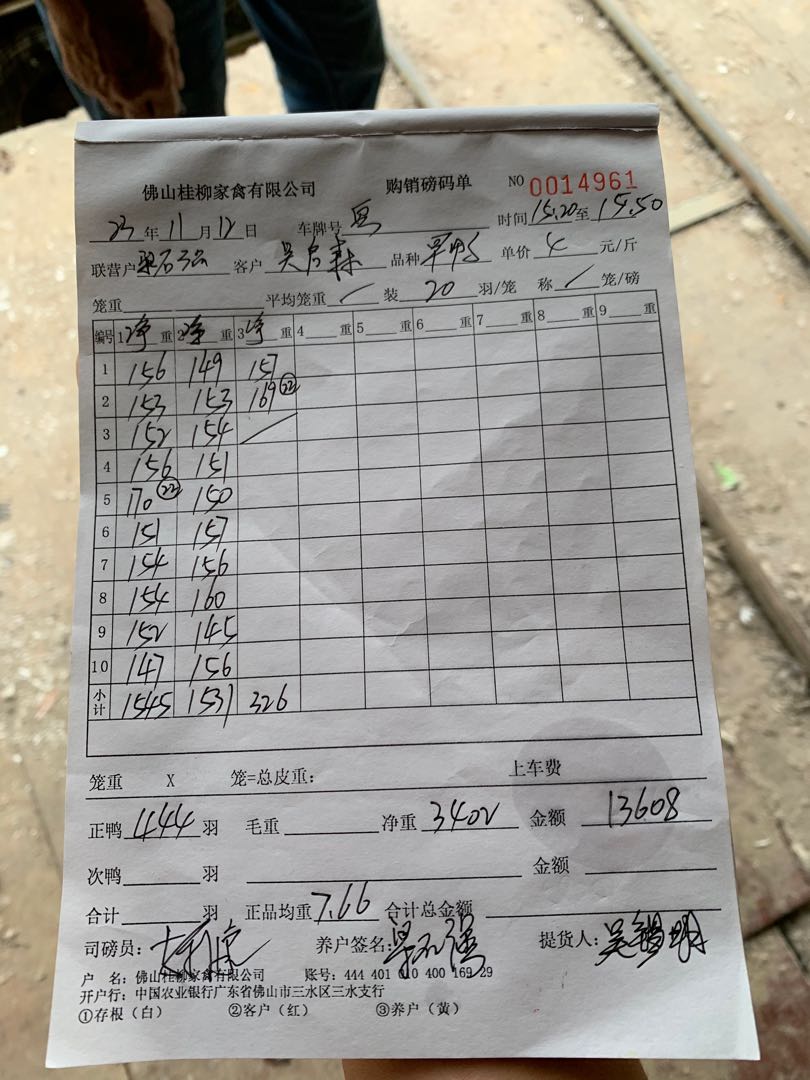 佛山桂柳家禽有限公司 购销磅码单 NO 0014961
23 年 11 月 12 日 车牌号 粤 时间 15.20 至 15.50
联营户 梁石强 客户 吴启森 品种 单价 4 元/斤
笼重 平均笼重 / 装 20 羽/笼 称 / 笼/磅
编号 1 净 重 2 净 重 3 净 重 4 重 5 重 6 重 7 重 8 重 9 重
1 156 149 157
2 153 153 169 (22)
3 152 154 /
4 156 151
5 170 (22) 150
6 151 157
7 154 156
8 154 160
9 152 145
10 147 156
小计 1545 1531 326
笼重 X 笼=总皮重: 上车费
正鸭 444 羽 毛重 净重 3402 金额 13608
次鸭 羽 金额
合计 羽 正品均重 7.66 合计总金额
司磅员: 养户签名: 梁石强 提货人: 吴锡明
户 名: 佛山桂柳家禽有限公司 账号: 444 401 010 400 169 29
开户行: 中国农业银行广东省佛山市三水区三水支行
①存根（白） ②客户（红） ③养户（黄）